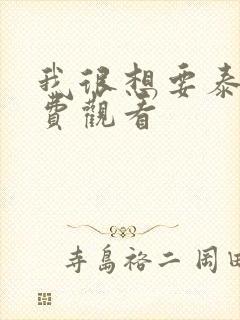 我很想要泰
費觀看
寺島裕二 岡田